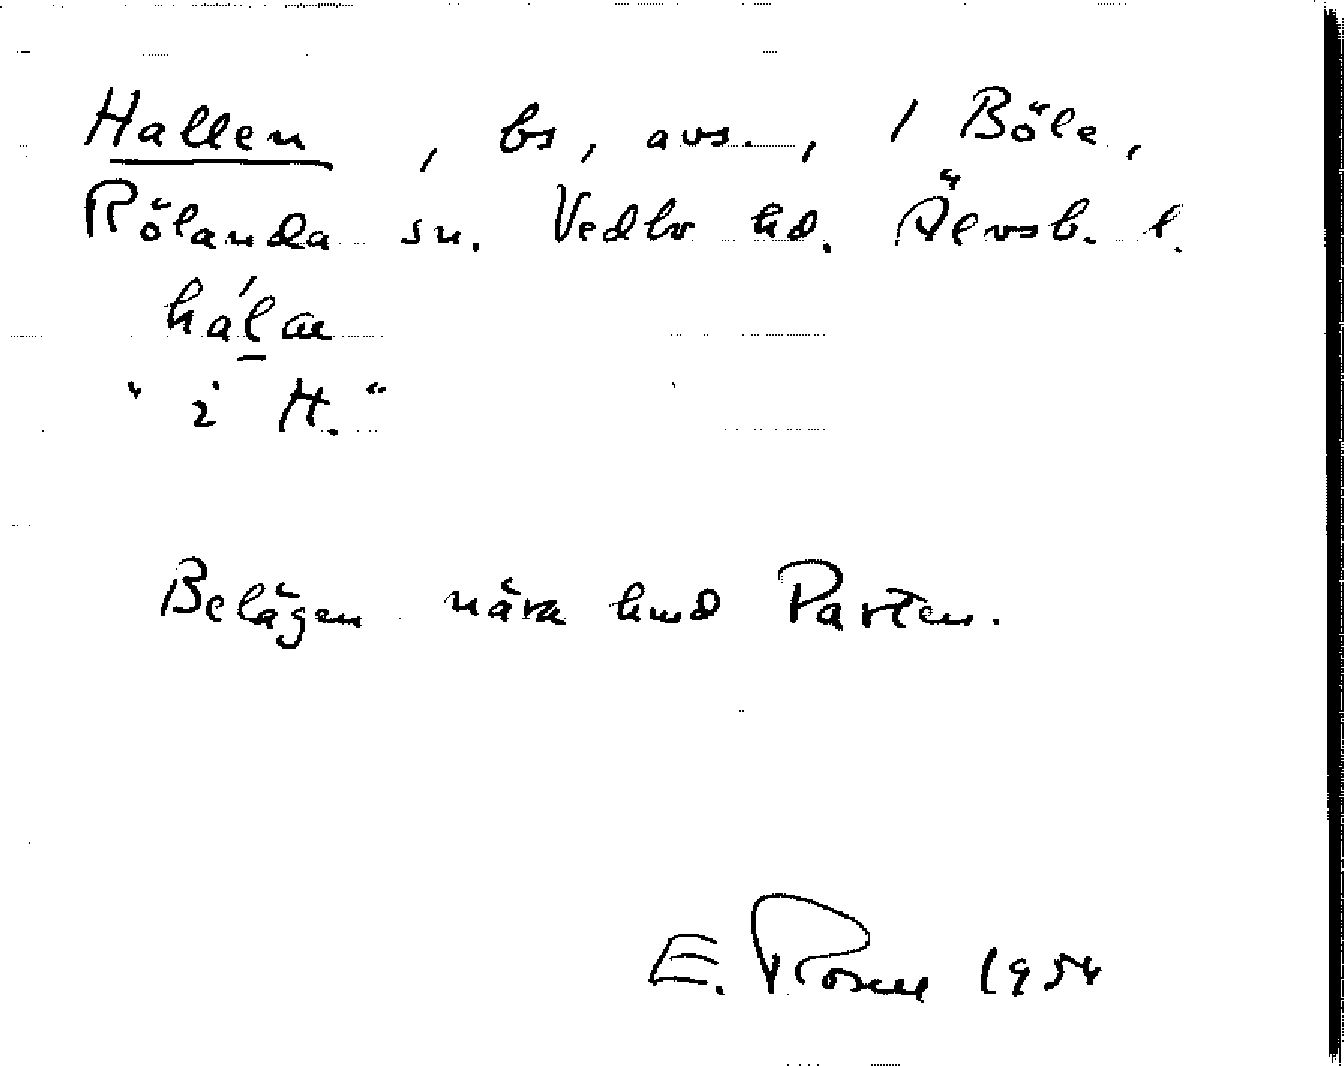 Hallen, bs, avs., 1 Böle,
Rölanda sn. Vedbo hd. Älvsb. l.
hál̠an
"i H."
Belägen nära land Parten.
E. Rosell 1954